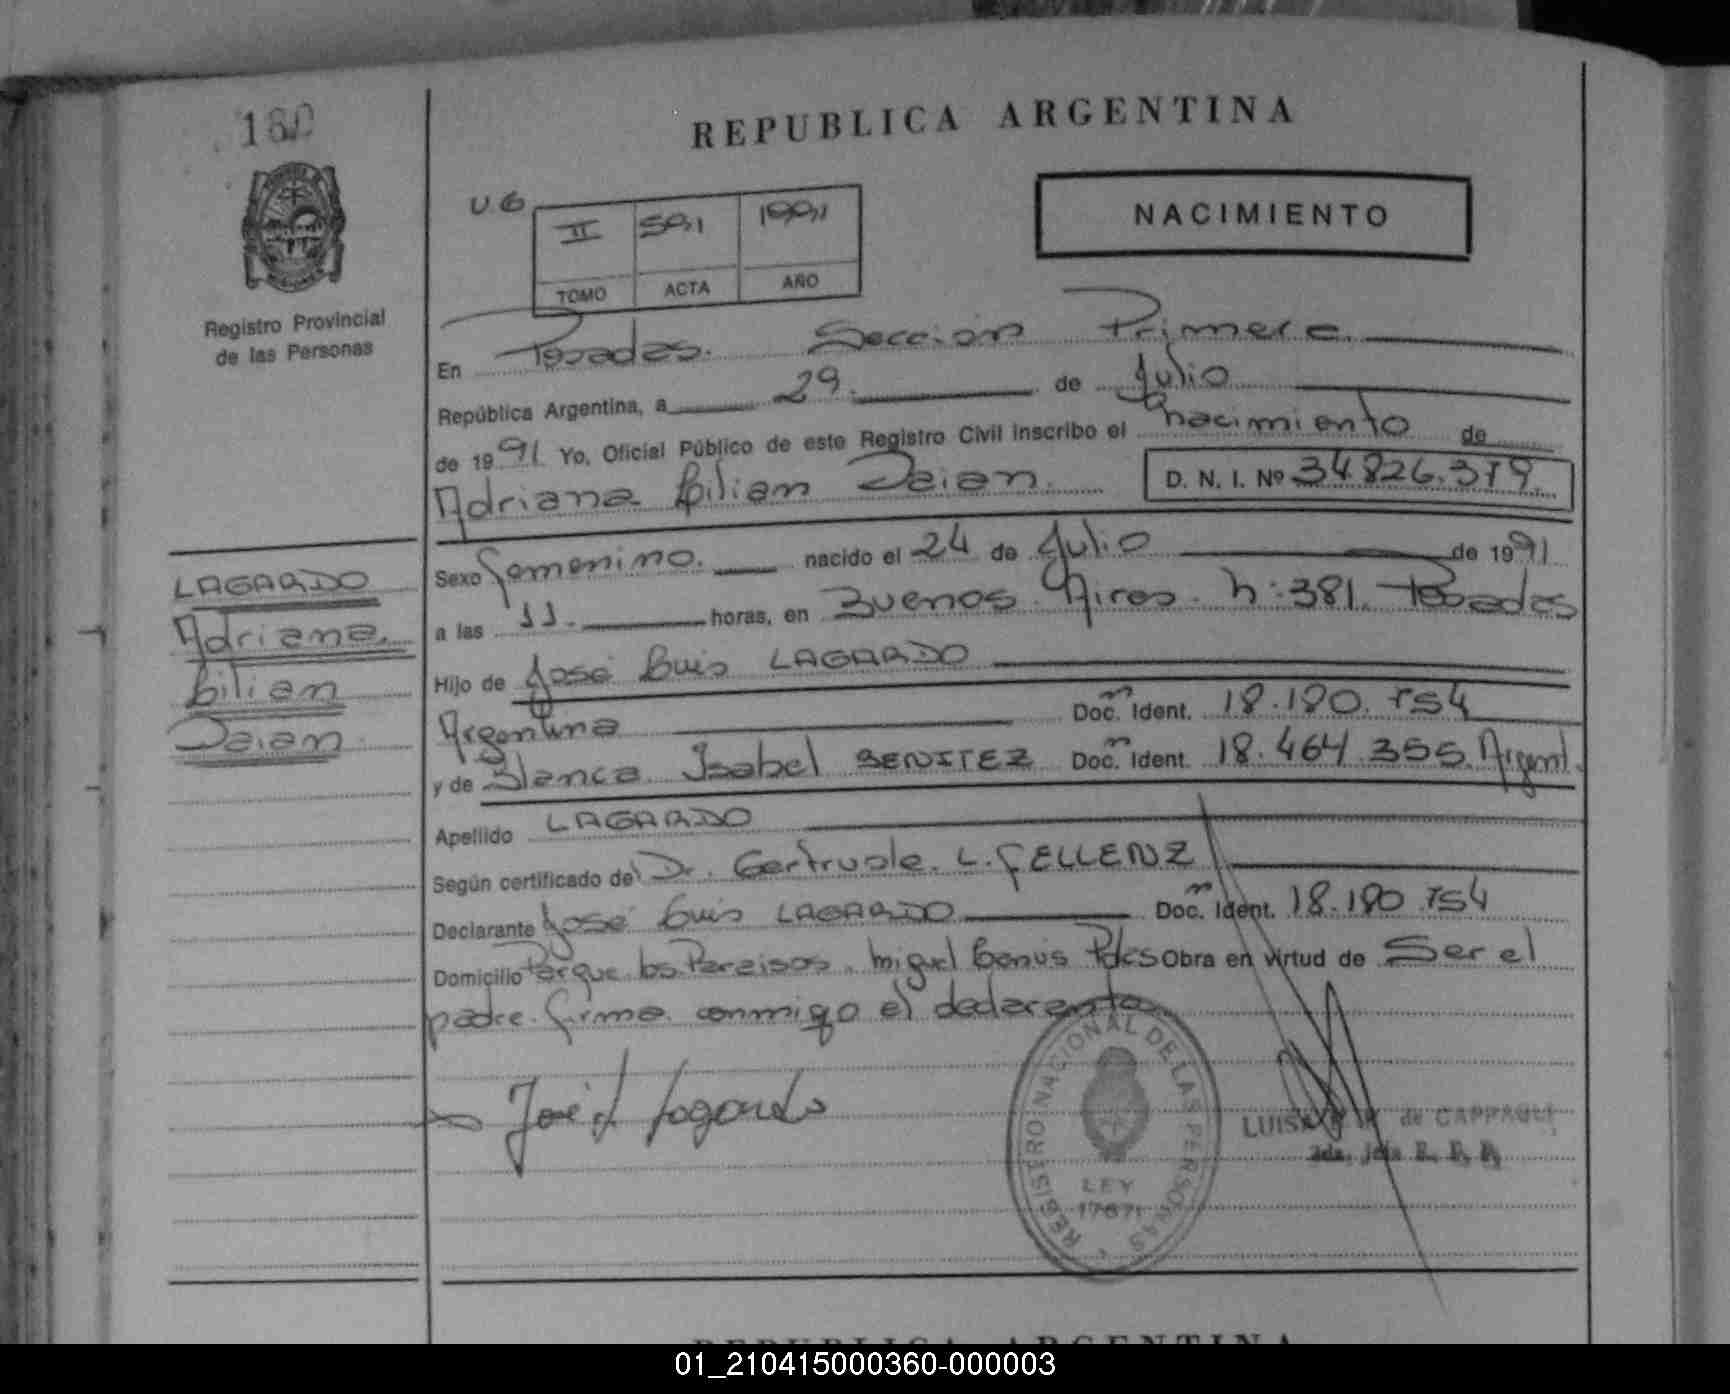 180
REPUBLICA ARGENTINA
Registro Provincial
de las Personas
U.6
II 591 1991
TOMO ACTA AÑO
NACIMIENTO
En Posadas. Sección Primera.
República Argentina, a 29. de Julio
de 1991 Yo, Oficial Público de este Registro Civil inscribo el nacimiento de
Adriana Lilian Daian. D. N. I. Nº 34.826.379.
Sexo femenino. nacido el 24 de Julio de 1991
a las 11. horas, en Buenos Aires. n: 381. Posadas
Hijo de José Luis LAGARDO
Argentina Doc. Ident. 18.180.754
y de Blanca Isabel BENITEZ Doc. Ident. 18.464.355. Argent.
Apellido LAGARDO
Según certificado de Dr. Gertrude. L. FELLENZ
Declarante José Luis LAGARDO Doc. Ident. 18.180.754
Domicilio Parque los Paraisos. Miguel Lanús Pdas Obra en virtud de Ser el
padre. firma conmigo el declarante
LAGARDO
Adriana.
Lilian
Daian.
José L Lagardo
REGISTRO NACIONAL DE LAS PERSONAS
LEY
17671
LUISA de CAPPAQUI
01_210415000360-000003